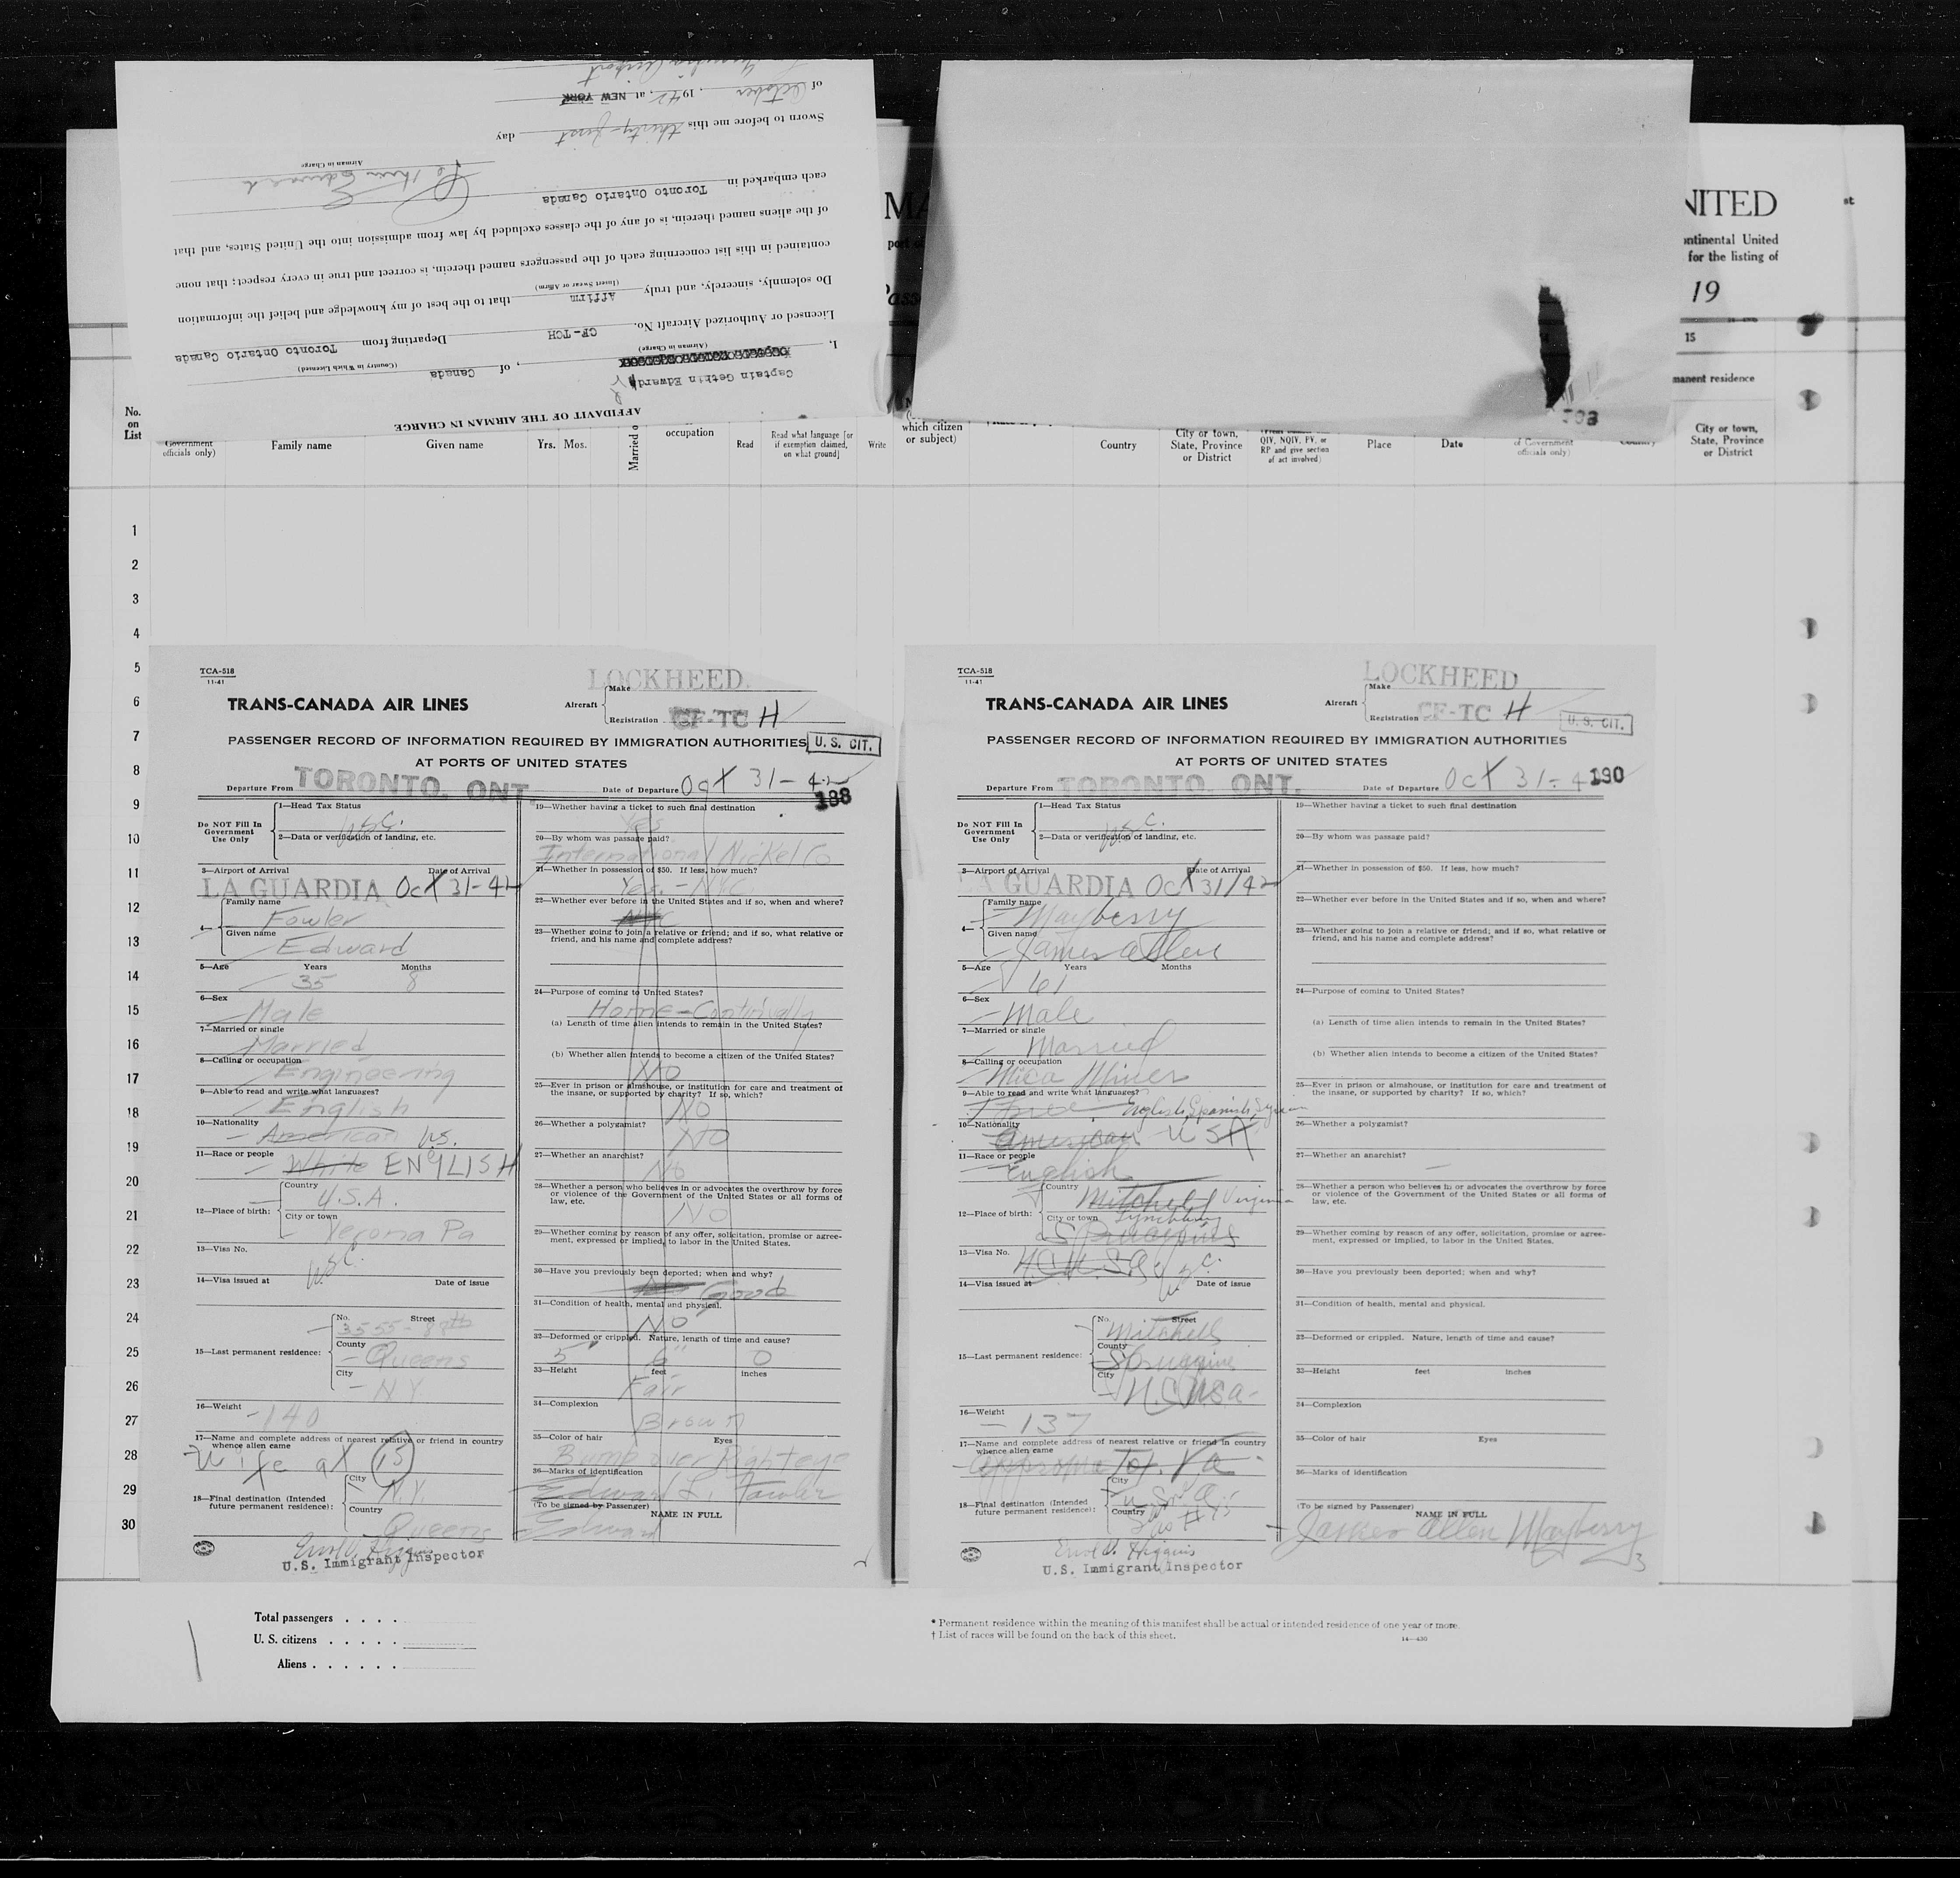 AFFIDAVIT OF THE AIRMAN IN CHARGE
Captain Gethin Edward
I, , of Canada
(Airman in Charge) (Country in Which Licensed)
Licensed or Authorized Aircraft No. CF-TCH Departing from Toronto Ontario Canada
Do solemnly, sincerely, and truly Affirm that to the best of my knowledge and belief the information
(Insert Swear or Affirm)
contained in this list concerning each of the passengers named therein, is correct and true in every respect; that none
of the aliens named therein, is of any of the classes excluded by law from admission into the United States, and that
each embarked in Toronto Ontario Canada
Airman in Charge
Sworn to before me this thirty-first day
of October, 1942, at NEW YORK
Airport
NITED
ntinental United
for the listing of
19
15
manent residence
No.
on
List
Government
officials only)
Family name
Given name
Yrs. Mos.
occupation
Read
Read what language [or
if exemption claimed,
on what ground]
Write
which citizen
or subject)
Country
City or town,
State, Province
or District
QIV, NQIV, PV, or
RP and give section
of act involved)
Place
Date
of Government
officials only)
City or town,
State, Province
or District
1
2
3
4
5
6
7
8
9
10
11
12
13
14
15
16
17
18
19
20
21
22
23
24
25
26
27
28
29
30
TCA-518
11-41
LOCKHEED
TRANS-CANADA AIR LINES
Aircraft
Make
Registration CF-TC H
PASSENGER RECORD OF INFORMATION REQUIRED BY IMMIGRATION AUTHORITIES U. S. CIT.
AT PORTS OF UNITED STATES
Departure From TORONTO, ONT. Date of Departure Oct 31-42
188
Do NOT Fill In
Government
Use Only
1—Head Tax Status
U.S.C.
2—Data or verification of landing, etc.
3—Airport of Arrival Date of Arrival
LA GUARDIA Oct 31-42
4—
Family name
Fowler
Given name
Edward
5—Age Years Months
35 8
6—Sex
Male
7—Married or single
Married
8—Calling or occupation
Engineering
9—Able to read and write what languages?
English
10—Nationality
American U.S.
11—Race or people
White ENGLISH
12—Place of birth:
Country
U.S.A.
City or town
Verona Pa
13—Visa No.
U.S.C.
14—Visa issued at Date of issue
15—Last permanent residence:
No. Street
3555-88th
County
Queens
City
N.Y.
16—Weight
140
17—Name and complete address of nearest relative or friend in country
whence alien came
Wife at 15
18—Final destination (Intended
future permanent residence):
City
N.Y.
Country
Queens
U.S. Immigrant Inspector
19—Whether having a ticket to such final destination
Yes
20—By whom was passage paid?
International Nickel Co
21—Whether in possession of $50. If less, how much?
Yes. - NYC
22—Whether ever before in the United States and if so, when and where?
23—Whether going to join a relative or friend; and if so, what relative or
friend, and his name and complete address?
24—Purpose of coming to United States?
Home-
(a) Length of time alien intends to remain in the United States?
(b) Whether alien intends to become a citizen of the United States?
NO
25—Ever in prison or almshouse, or institution for care and treatment of
the insane, or supported by charity? If so, which?
NO
26—Whether a polygamist?
NO
27—Whether an anarchist?
NO
28—Whether a person who believes in or advocates the overthrow by force
or violence of the Government of the United States or all forms of
law, etc.
NO
29—Whether coming by reason of any offer, solicitation, promise or agree-
ment, expressed or implied, to labor in the United States.
30—Have you previously been deported; when and why?
Good
31—Condition of health, mental and physical.
NO
32—Deformed or crippled. Nature, length of time and cause?
5 6 0
33—Height feet inches
Fair
34—Complexion
Brown
35—Color of hair Eyes
over Right eye
36—Marks of identification
Edward L. Fowler
(To be signed by Passenger) NAME IN FULL
Edward
TCA-518
11-41
LOCKHEED
TRANS-CANADA AIR LINES
Aircraft
Make
Registration CF-TC H
U. S. CIT.
PASSENGER RECORD OF INFORMATION REQUIRED BY IMMIGRATION AUTHORITIES
AT PORTS OF UNITED STATES
Departure From TORONTO, ONT. Date of Departure Oct 31-4 190
Do NOT Fill In
Government
Use Only
1—Head Tax Status
U.S.C.
2—Data or verification of landing, etc.
3—Airport of Arrival Date of Arrival
LA GUARDIA Oct 31/42
4—
Family name
Mayberry
Given name
James Allen
5—Age Years Months
61
6—Sex
Male
7—Married or single
Married
8—Calling or occupation
Mica Miner
9—Able to read and write what languages?
Three English, Spanish,
10—Nationality
American USA
11—Race or people
English
12—Place of birth:
Country
Mitchell Virginia
City or town
Lynchburg
13—Visa No.
14—Visa issued at Date of issue
15—Last permanent residence:
No. Street
Mitchell
County
City
N.C. USA
16—Weight
137
17—Name and complete address of nearest relative or friend in country
whence alien came
Va
18—Final destination (Intended
future permanent residence):
City
Country
as #15
U.S. Immigrant Inspector
19—Whether having a ticket to such final destination
20—By whom was passage paid?
21—Whether in possession of $50. If less, how much?
22—Whether ever before in the United States and if so, when and where?
23—Whether going to join a relative or friend; and if so, what relative or
friend, and his name and complete address?
24—Purpose of coming to United States?
(a) Length of time alien intends to remain in the United States?
(b) Whether alien intends to become a citizen of the United States?
25—Ever in prison or almshouse, or institution for care and treatment of
the insane, or supported by charity? If so, which?
26—Whether a polygamist?
27—Whether an anarchist?
28—Whether a person who believes in or advocates the overthrow by force
or violence of the Government of the United States or all forms of
law, etc.
29—Whether coming by reason of any offer, solicitation, promise or agree-
ment, expressed or implied, to labor in the United States.
30—Have you previously been deported; when and why?
31—Condition of health, mental and physical.
32—Deformed or crippled. Nature, length of time and cause?
33—Height feet inches
34—Complexion
35—Color of hair Eyes
36—Marks of identification
(To be signed by Passenger) NAME IN FULL
Allen Mayberry
3
Total passengers . . . .
U. S. citizens . . . . .
Aliens . . . . . .
* Permanent residence within the meaning of this manifest shall be actual or intended residence of one year or more.
† List of races will be found on the back of this sheet.
14—430